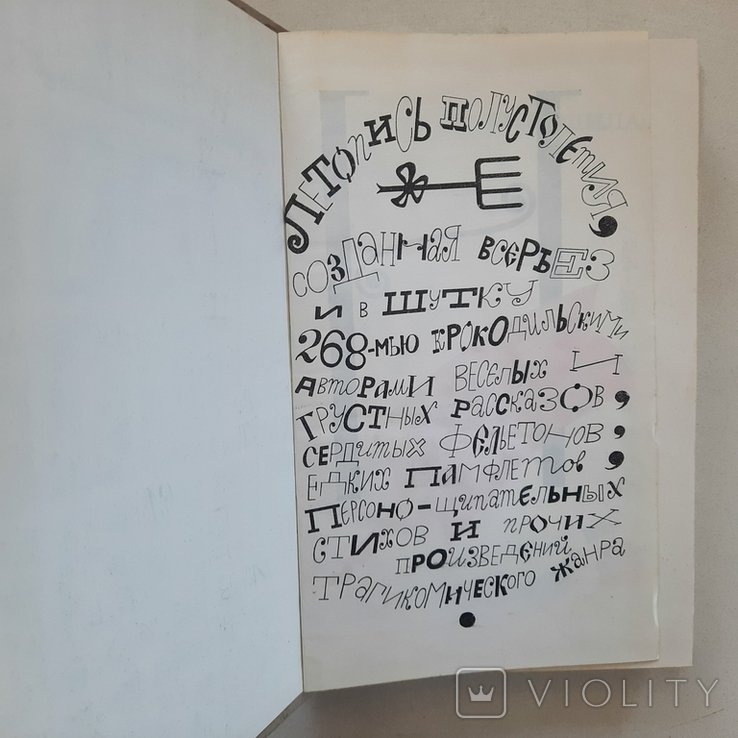 Летопись полустолетия,
созданная всерьез
и в шутку
268-мью крокодильскими
авторами веселых и
грустных рассказов,
сердитых фельетонов,
едких памфлетов,
персоно-щипательных
стихов и прочих
произведений
трагикомического жанра
.
VIOLITY